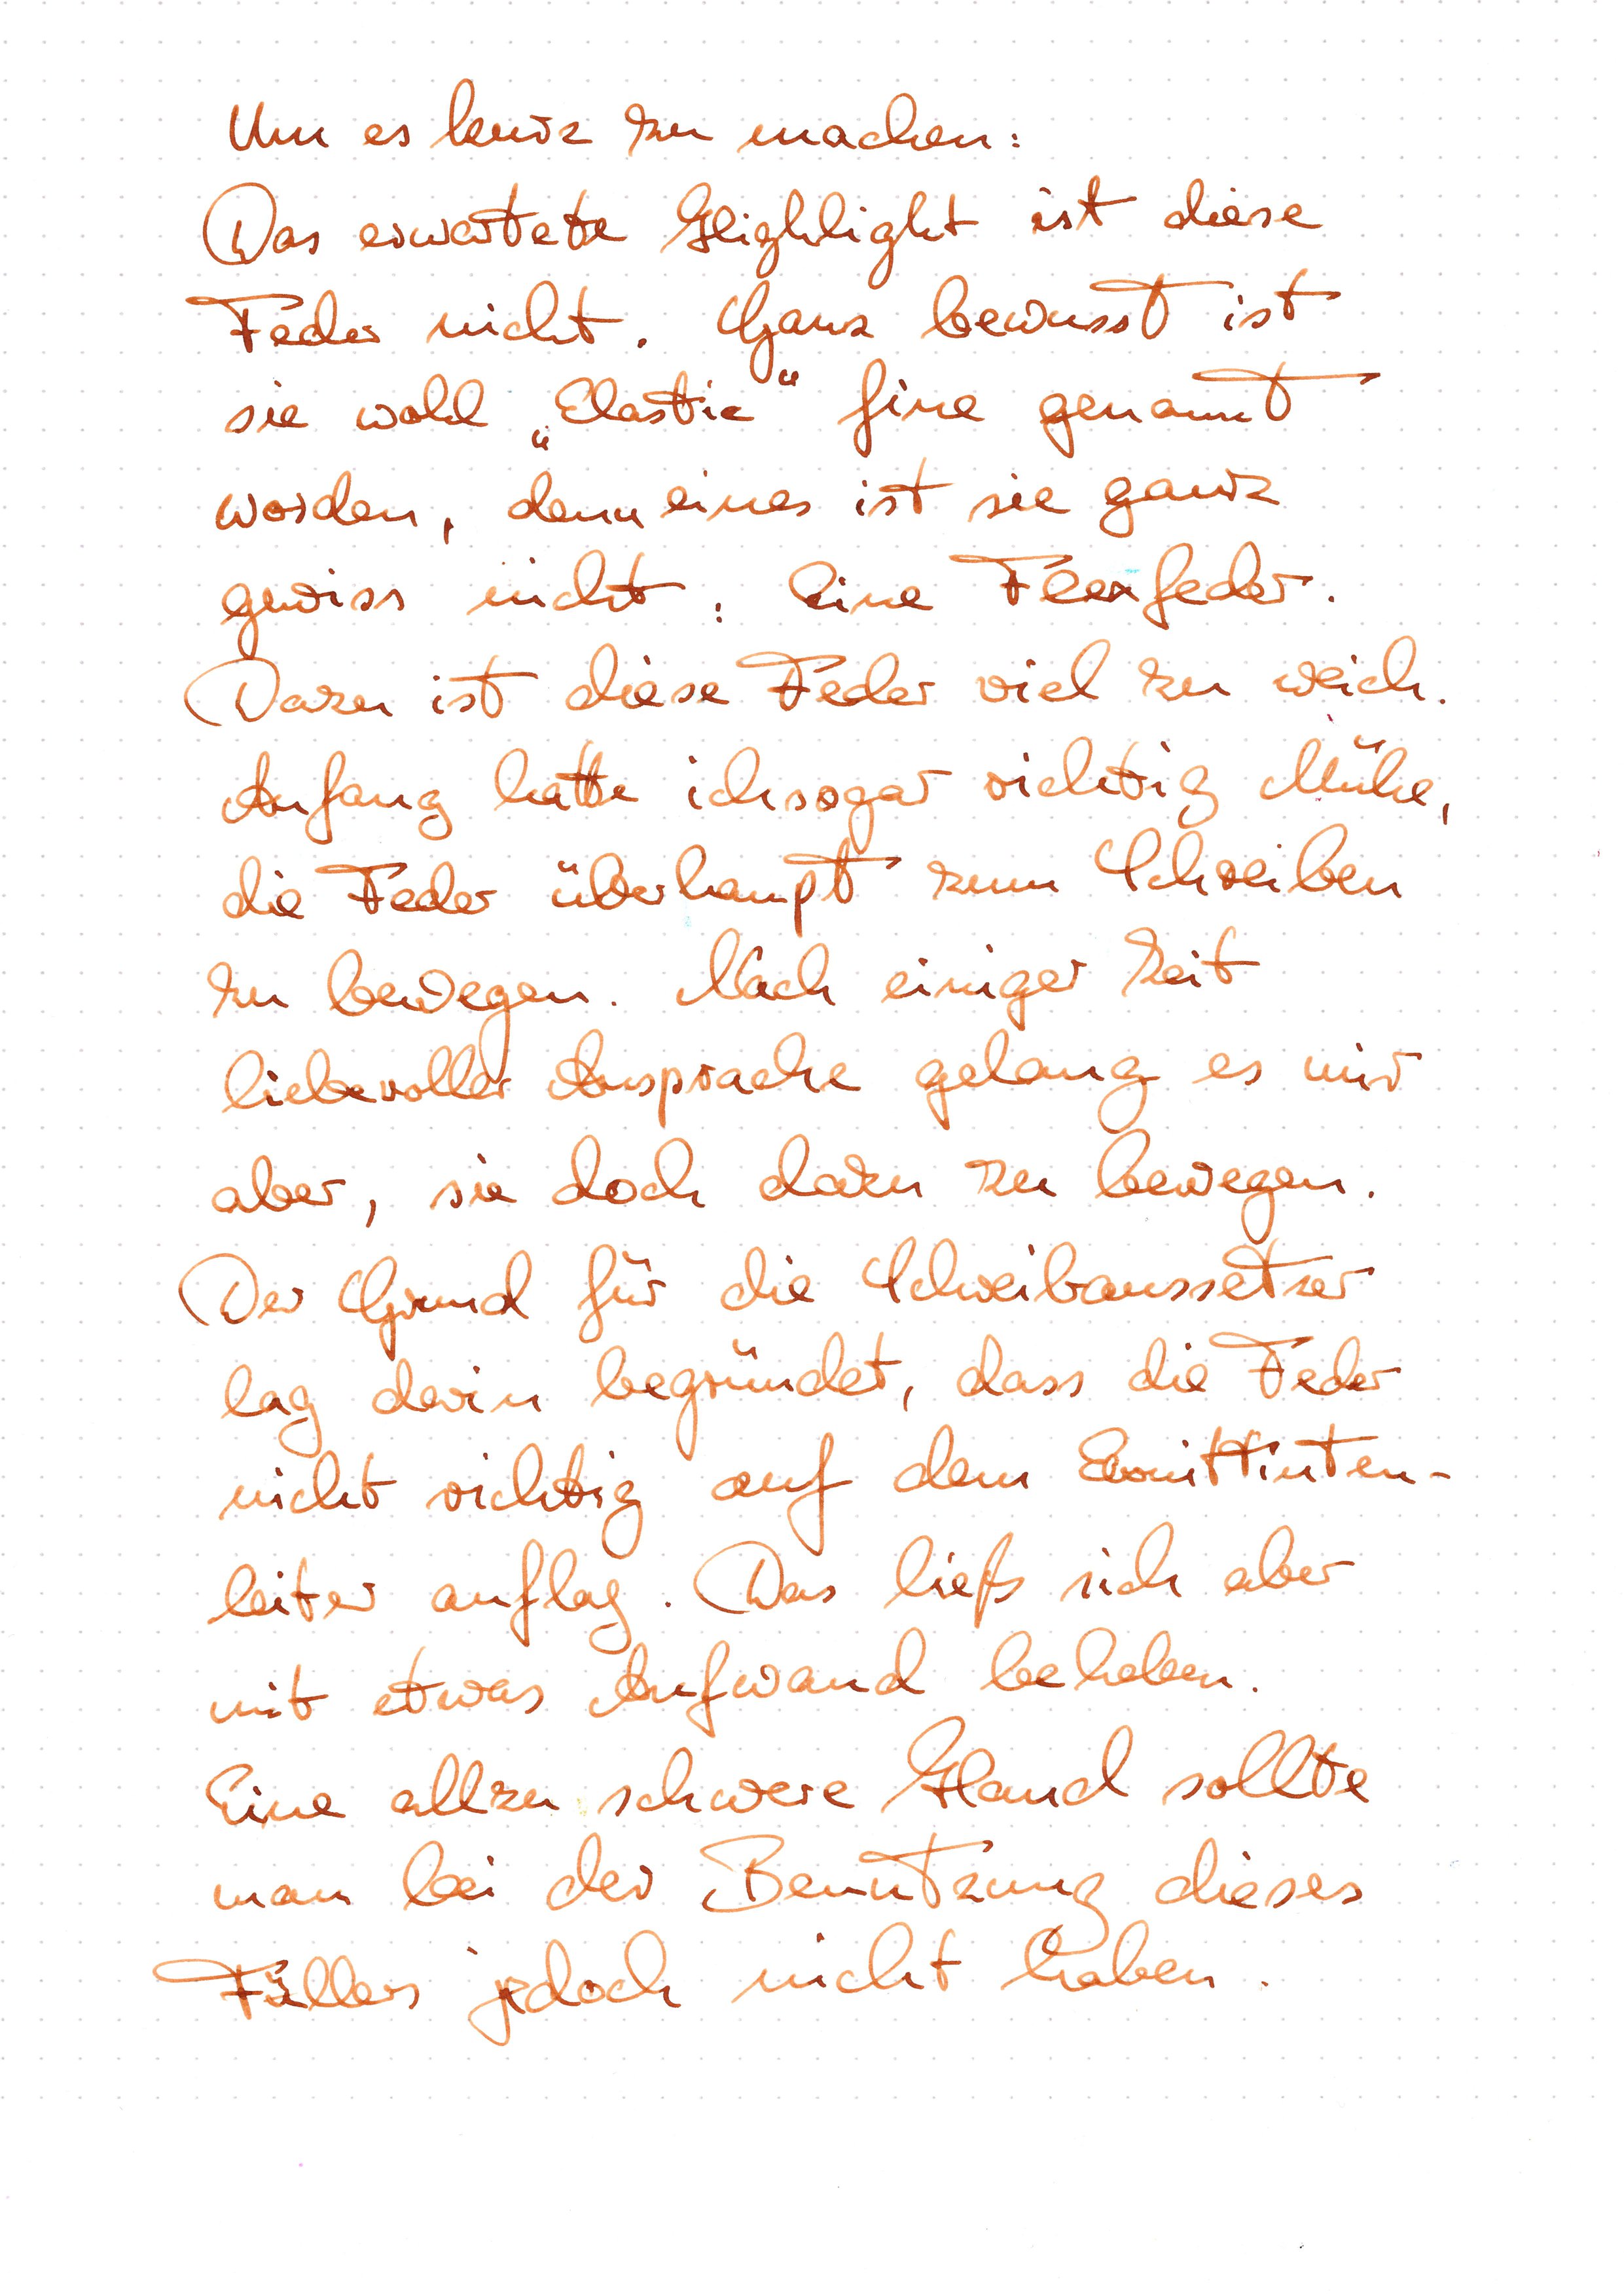 Um es kurz zu machen:
Das erwartete Highlight ist diese
Feder nicht. Ganz bewusst ist
sie wohl „Elastic“ fine genannt
worden, denn eines ist sie ganz
gewiss nicht: Eine Flexfeder.
Dazu ist diese Feder viel zu weich.
Anfang hatte ich sogar richtig Mühe,
die Feder überhaupt zum Schreiben
zu bewegen. Nach einiger Zeit
liebevoller Ansprache gelang es mir
aber, sie doch dazu zu bewegen.
Der Grund für die Schreibaussetzer
lag darin begründet, dass die Feder
nicht richtig auf dem Ebonittinten-
leiter auflag. Das ließ sich aber
mit etwas Aufwand beheben.
Eine allzu schwere Hand sollte
man bei der Benutzung dieses
Füllers jedoch nicht haben.